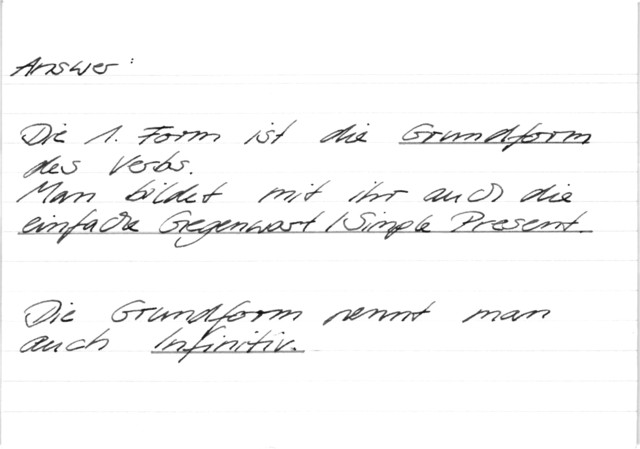 Answer:
Die 1. Form ist die Grundform
des Verbs.
Man bildet mit ihr auch die
einfache Gegenwart / Simple Present.
Die Grundform nennt man
auch Infinitiv.